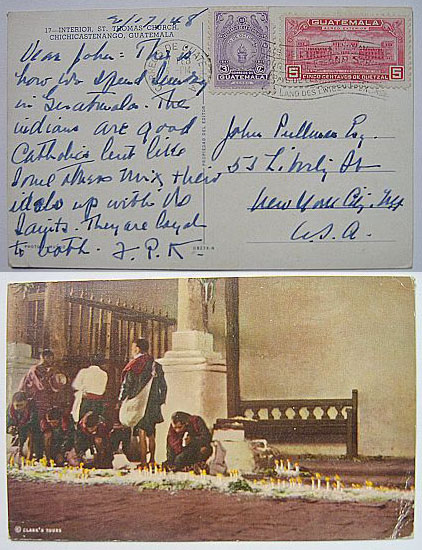 2/17/48
17—INTERIOR, ST. THOMAS CHURCH,
CHICHICASTENANGO, GUATEMALA
Dear John: This is
how we spend Sunday
in Guatemala. The
indians are good
Catholics but like
some others mix their
idols up with the
Saints. They are loyal
to both. F.P.K.
PROPIEDAD DEL EDITOR
GUATEMALA
GUATEMALA
5 5
CINCO CENTAVOS DE QUETZAL
John Pullman Esq.
53 Liberty St
New York City. N.Y
U.S.A.
© CLARK'S TOURS